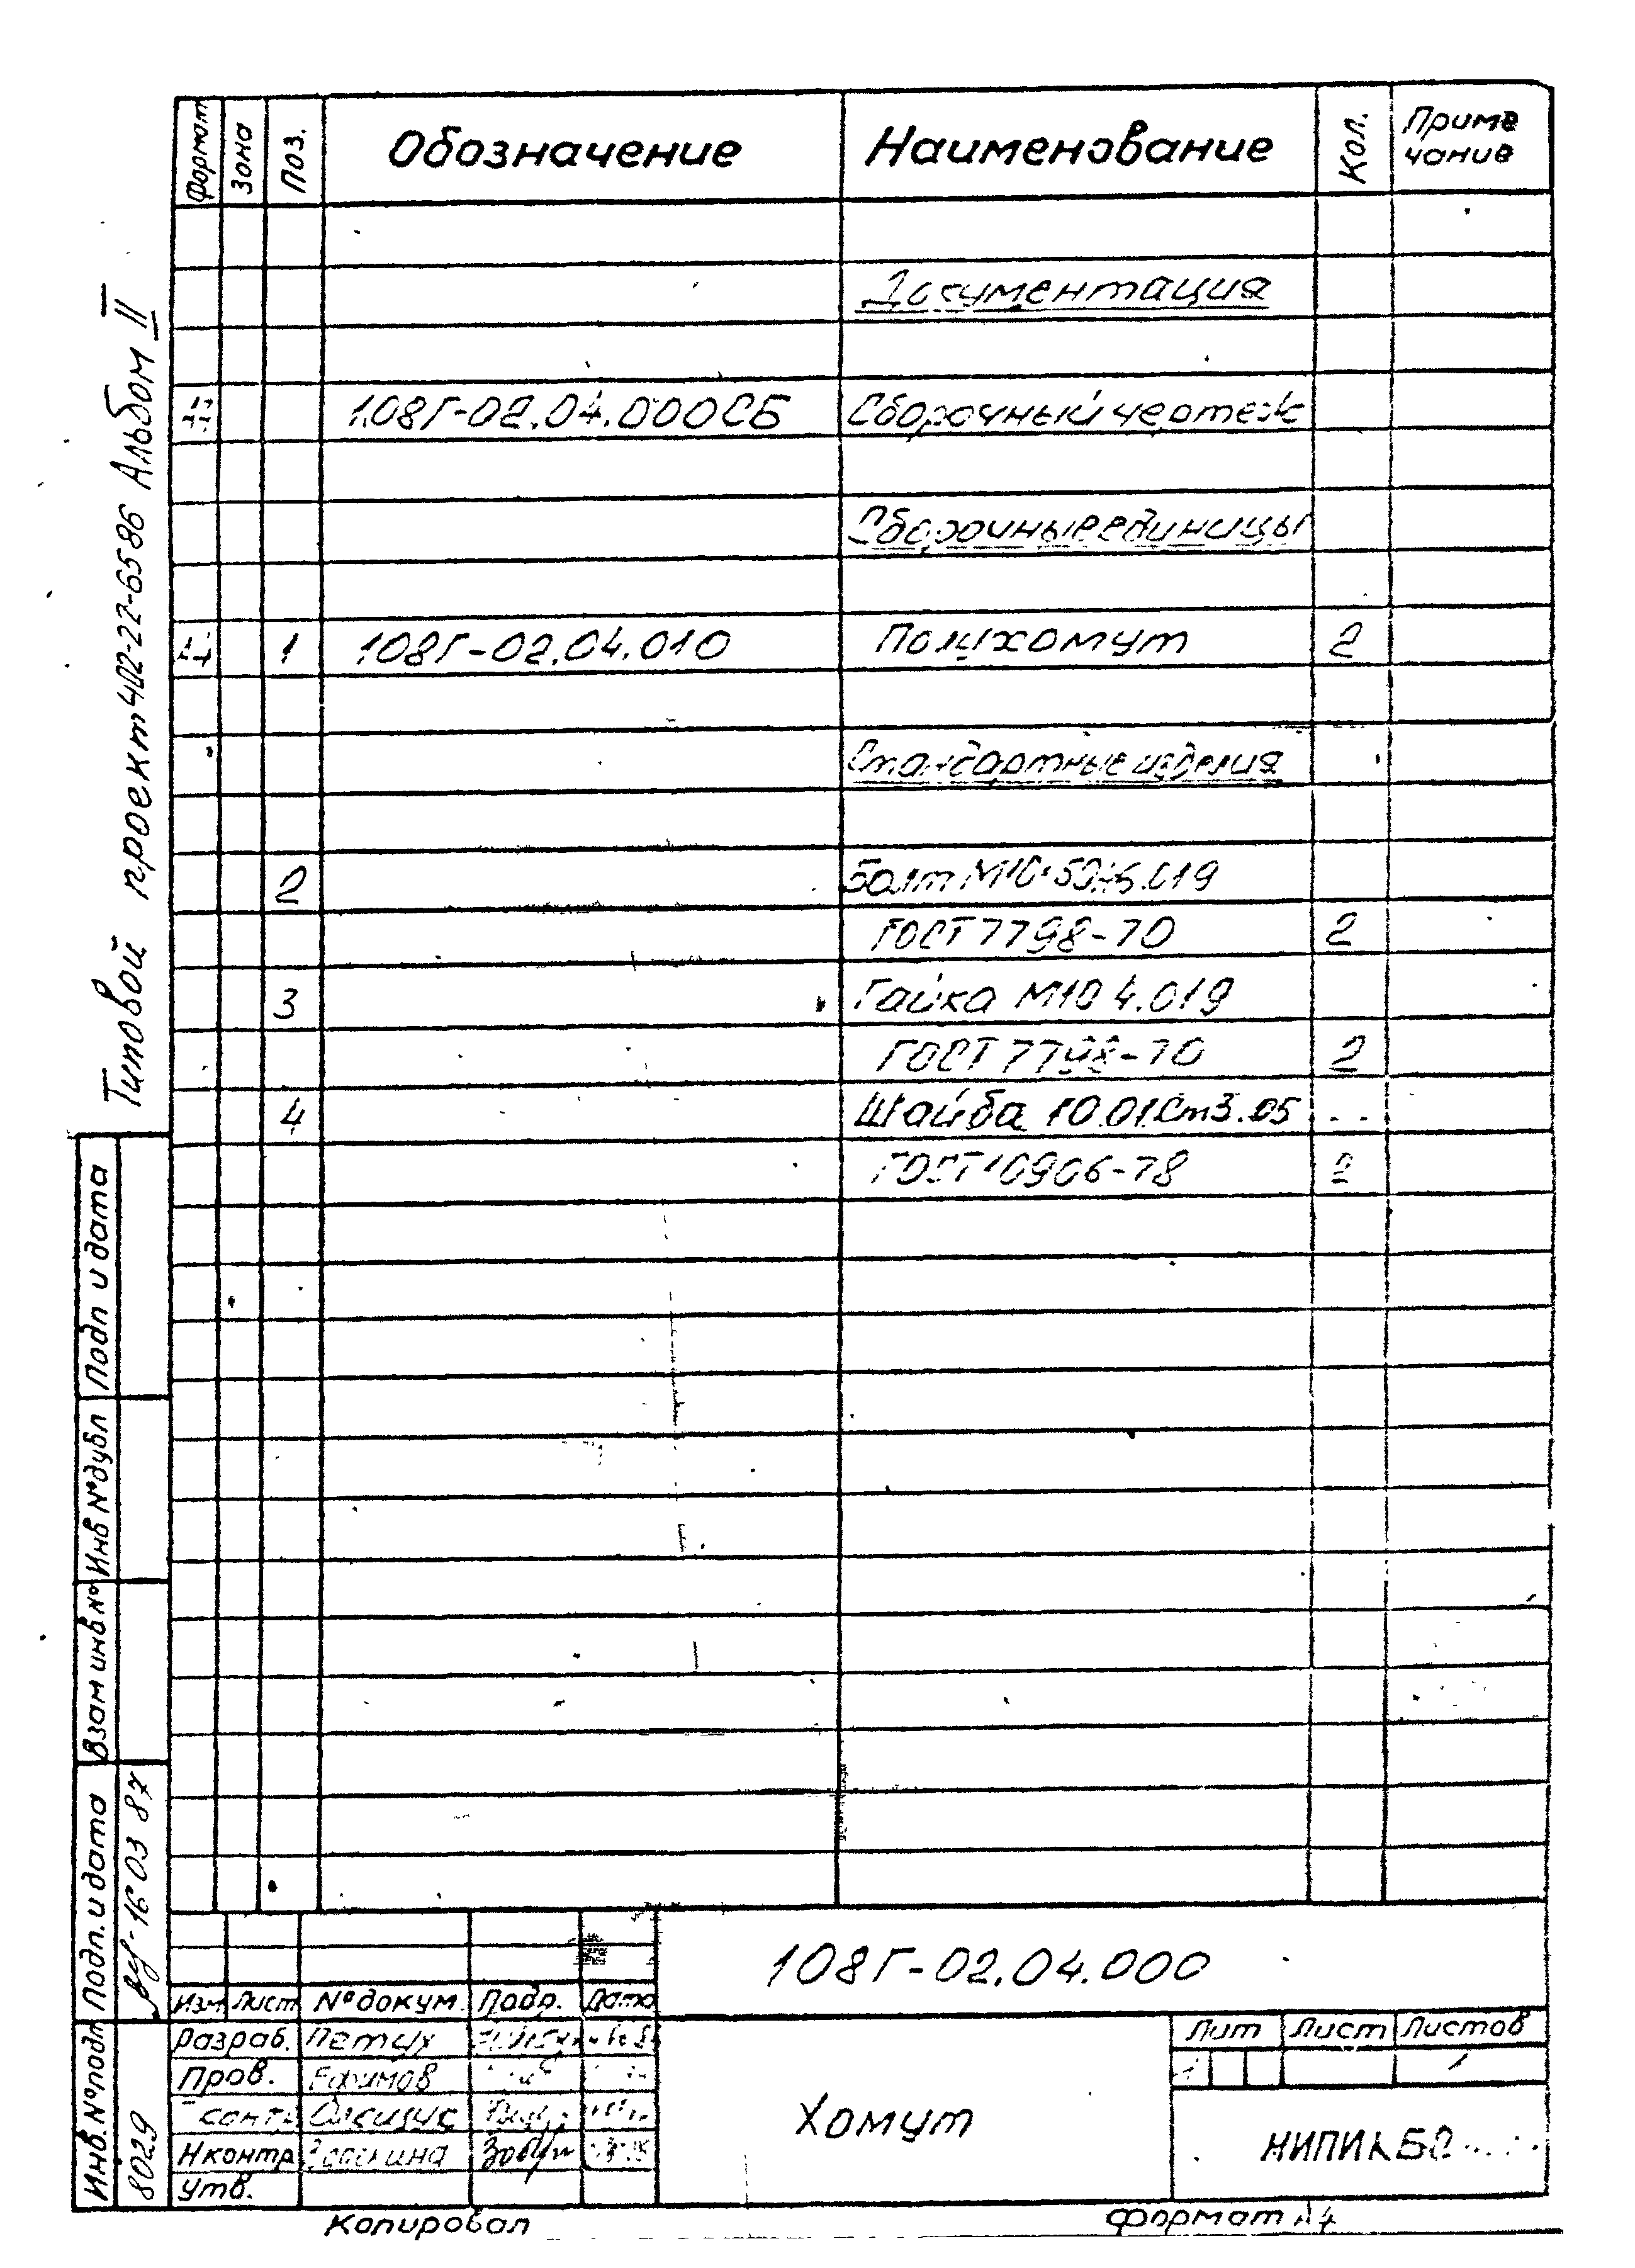 Формат Зона Поз. Обозначение Наименование Кол. Приме
чание
Документация
108Г-02.04.000СБ Сборочный чертеж
Сборочные единицы
1 108Г-02.04.010 Полухомут 2
Стандартные изделия
2 Болт М10 .019
ГОСТ 7798-70 2
3 Гайка М10 4.019
ГОСТ 7798-70 2
4 Шайба 10.01.Ст3.05
ГОСТ 10906-78 2
Типовой проект 402-22-65 86 Альбом II
Подп и дата
Инв № дубл
Взам инв. №
Подп. и дата
16 03 87
Инв. № подл
8029
108Г-02.04.000
Изм Лист № докум. Подр. Дата
Разраб. Петух
Пров. Ефимов
контр
Н контр
Утв.
Хомут
Лит Лист Листов
1
Копировал
Формат А4